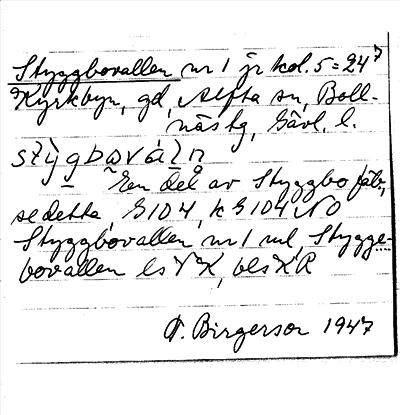 Styggbovallen nr 1 jr kol. 5 = 247
Kyrkbyn, gd, Alfta sn, Boll-
näs tg, Gävl. l.
En del av Styggbo fäb.,
se detta, G104, k G104 NO
Styggbovallen nr 1 ml, Stygge-
bovallen ls
T. Birgerson 1947